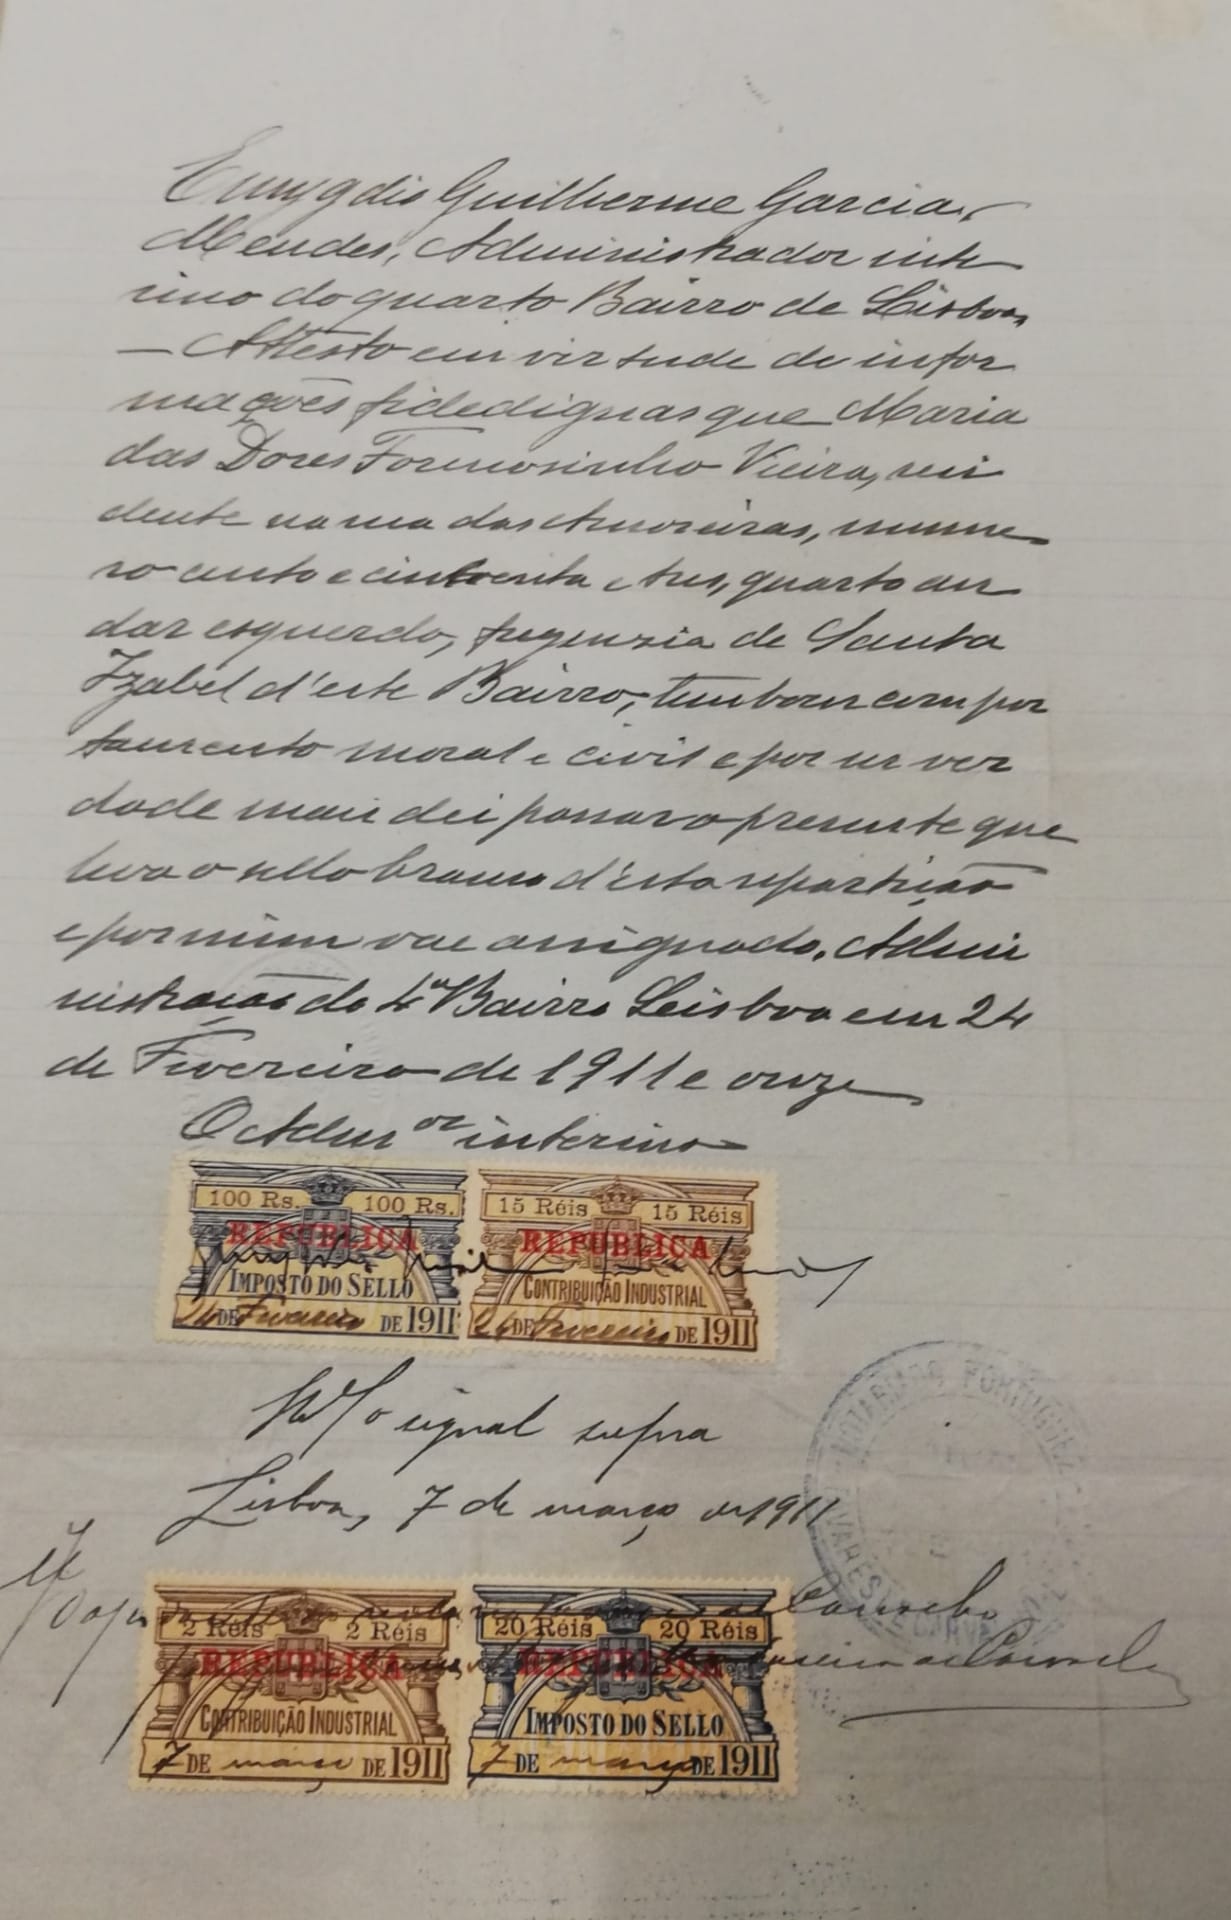 Emygdio Guilherme Garcia
Mendes, Administrador inte
rino do quarto Bairro de Lisboa
— Attesto em virtude de infor
mações fidedignas que Maria
das Dores Formosinho Vieira, resi
dente na rua das Amoreiras, nume
ro cento e cincoenta e tres, quarto an
dar esquerdo, freguezia de Santa
Izabel d'este Bairro, tem bom compor
tamento moral e civil e por ser ver
dade mandei passar o presente que
leva o sello branco d'esta repartição
e por mim vae assignado. Admi
nistração do 4º Bairro Lisboa em 24
de Fevereiro de 1911 e onze
O Admor interino
100 Rs. 100 Rs. 15 Réis 15 Réis
REPUBLICA REPUBLICA
IMPOSTO DO SELLO CONTRIBUIÇÃO INDUSTRIAL
24 DE Fevereiro DE 1911 24 DE Fevereiro DE 1911
o signal supra
Lisboa, 7 de março de 1911
NOTARIADO PORTUGUEZ
TAVARES DE CARVALHO
2 Réis 2 Réis 20 Réis 20 Réis
REPUBLICA REPUBLICA
de Carvalho
CONTRIBUIÇÃO INDUSTRIAL IMPOSTO DO SELLO
7 DE março DE 1911 7 DE março DE 1911